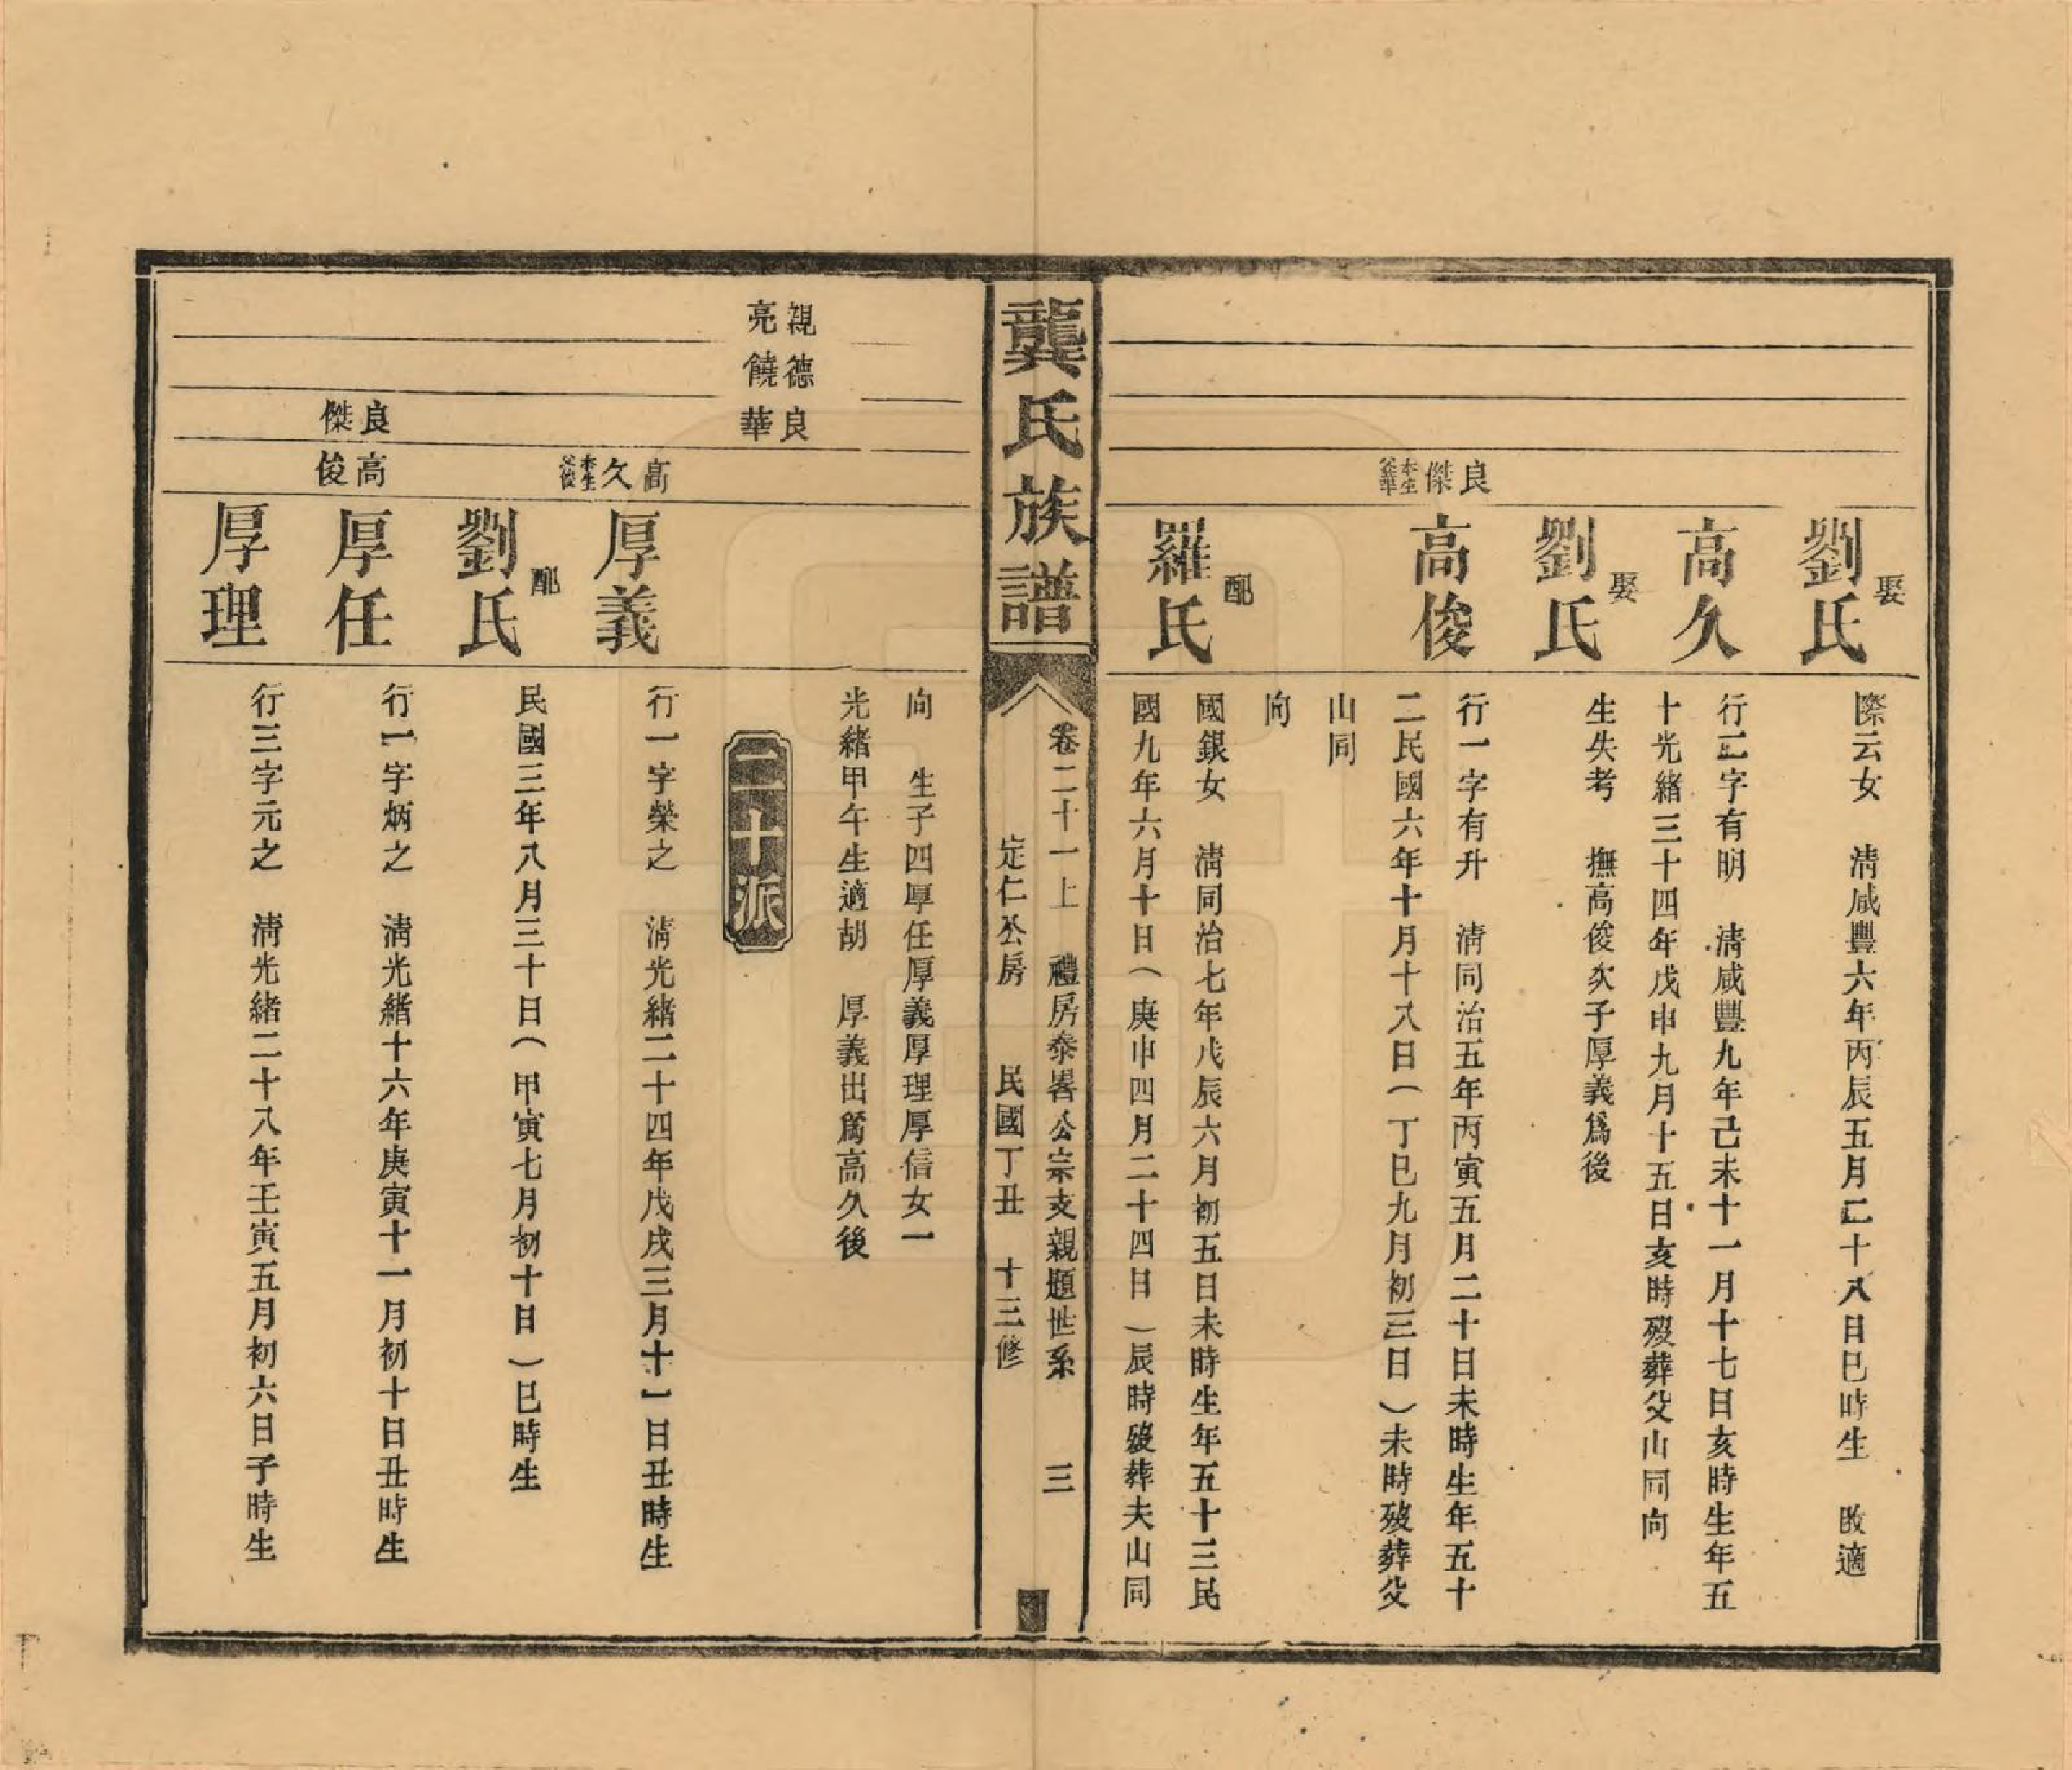 娶
劉氏
際云女　清咸豐六年丙辰五月二十八日巳時生　改適
高久
行二字有明　清咸豐九年己未十一月十七日亥時生年五
十光緒三十四年戊申九月十五日亥時歿葬父山同向
娶
劉氏
生失考　撫高俊次子厚義爲後
良傑
本生父華
高俊
行一字有升　清同治五年丙寅五月二十日未時生年五十
二民國六年十月十八日（丁巳九月初三日）未時歿葬父
山同
向
配
羅氏
國銀女　清同治七年戊辰六月初五日未時生年五十三民
國九年六月十日（庚申四月二十四日）辰時歿葬夫山同
龔氏族譜
卷二十一上　禮房泰畧公宗支親題世系　三
定仁公房　民國丁丑　十三修
向　生子四厚任厚義厚理厚信女一
光緒甲午生適胡　厚義出爲高久後
親亮
德饒
良華
二十派
高久
本生父俊
厚義
行一字榮之　清光緒二十四年戊戌三月十一日丑時生
配
劉氏
民國三年八月三十日（甲寅七月初十日）巳時生
良傑
高俊
厚任
行一字炳之　清光緒十六年庚寅十一月初十日丑時生
厚理
行三字元之　清光緒二十八年壬寅五月初六日子時生